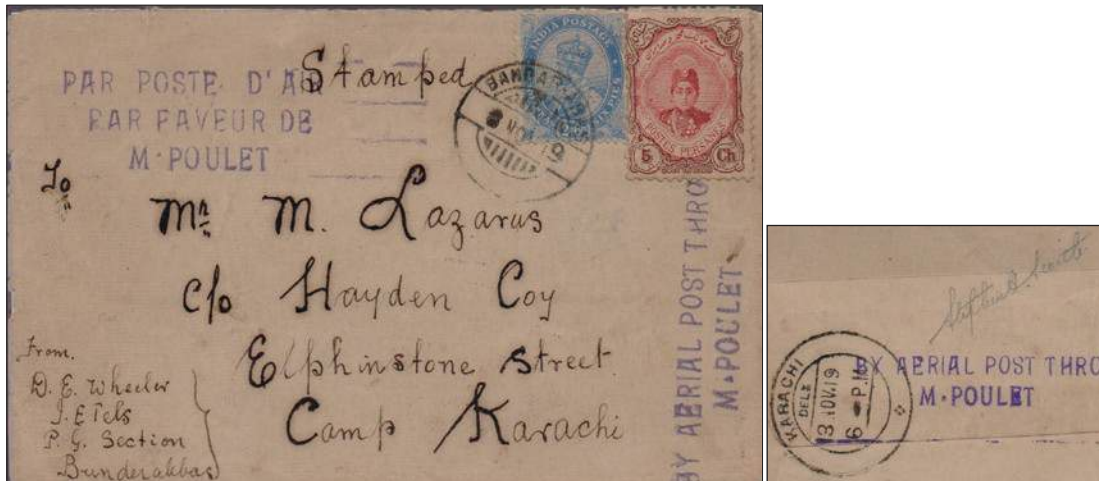 PAR POSTE D'A
PAR FAVEUR DE
M·POULET
Stamped
INDIA POSTAGE
BANDAR
NOV 19
5 Ch
POSTES PERSANES
To
Mr. M. Lazarus
c/o Hayden Coy
Elphinstone Street
Camp Karachi
From.
D. E. Wheeler
P. G. Section
Bunderabbas
BY AERIAL POST THRO
M·POULET
KARACHI
DEL
13 NOV. 19
6 P.M
BY AERIAL POST THRO
M·POULET